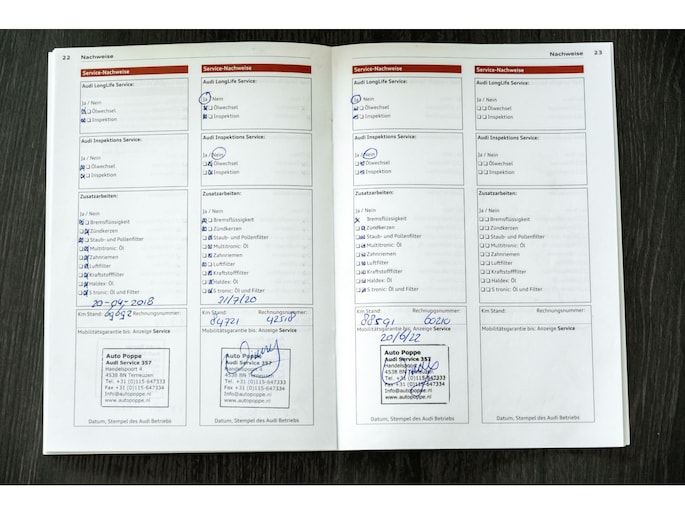 22 Nachweise
Service-Nachweise
Audi LongLife Service:
Ja / Nein
Ölwechsel
Inspektion
Audi Inspektions Service:
Ja / Nein
Ölwechsel
Inspektion
Zusatzarbeiten:
Ja / Nein
Bremsflüssigkeit
Zündkerzen
Staub- und Pollenfilter
Multitronic: Öl
Zahnriemen
Luftfilter
Kraftstofffilter
Haldex: Öl
S tronic: Öl und Filter
20-04-2018
Km Stand: Rechnungsnummer:
Mobilitätsgarantie bis: Anzeige Service
Auto Poppe
Audi Service 357
Handelspoort 4
4538 BN Terneuzen
Tel. +31 (0)115-647333
Fax +31 (0)115-647334
Info@autopoppe.nl
www.autopoppe.nl
Datum, Stempel des Audi Betriebs
Service-Nachweise
Audi LongLife Service:
Ja / Nein
Ölwechsel
Inspektion
Audi Inspektions Service:
Ja / Nein
Ölwechsel
Inspektion
Zusatzarbeiten:
Ja / Nein
Bremsflüssigkeit
Zündkerzen
Staub- und Pollenfilter
Multitronic: Öl
Zahnriemen
Luftfilter
Kraftstofffilter
Haldex: Öl
S tronic: Öl und Filter
21/7/20
Km Stand: Rechnungsnummer:
84721 42518
Mobilitätsgarantie bis: Anzeige Service
Auto Poppe
Audi Service 357
Handelspoort 4
4538 BN Terneuzen
Tel. +31 (0)115-647333
Fax +31 (0)115-647334
Info@autopoppe.nl
www.autopoppe.nl
Datum, Stempel des Audi Betriebs
Nachweise 23
Service-Nachweise
Audi LongLife Service:
Ja / Nein
Ölwechsel
Inspektion
Audi Inspektions Service:
Ja / Nein
Ölwechsel
Inspektion
Zusatzarbeiten:
Ja / Nein
Bremsflüssigkeit
Zündkerzen
Staub- und Pollenfilter
Multitronic: Öl
Zahnriemen
Luftfilter
Kraftstofffilter
Haldex: Öl
S tronic: Öl und Filter
Km Stand: Rechnungsnummer:
88591 60210
Mobilitätsgarantie bis: Anzeige Service
20/6/22
Auto Poppe
Audi Service 357
Handelspoort 4
4538 BN Terneuzen
Tel. +31 (0)115-647333
Fax +31 (0)115-647334
Info@autopoppe.nl
www.autopoppe.nl
Datum, Stempel des Audi Betriebs
Service-Nachweise
Audi LongLife Service:
Ja / Nein
Ölwechsel
Inspektion
Audi Inspektions Service:
Ja / Nein
Ölwechsel
Inspektion
Zusatzarbeiten:
Ja / Nein
Bremsflüssigkeit
Zündkerzen
Staub- und Pollenfilter
Multitronic: Öl
Zahnriemen
Luftfilter
Kraftstofffilter
Haldex: Öl
S tronic: Öl und Filter
Km Stand: Rechnungsnummer:
Mobilitätsgarantie bis: Anzeige Service
Datum, Stempel des Audi Betriebs